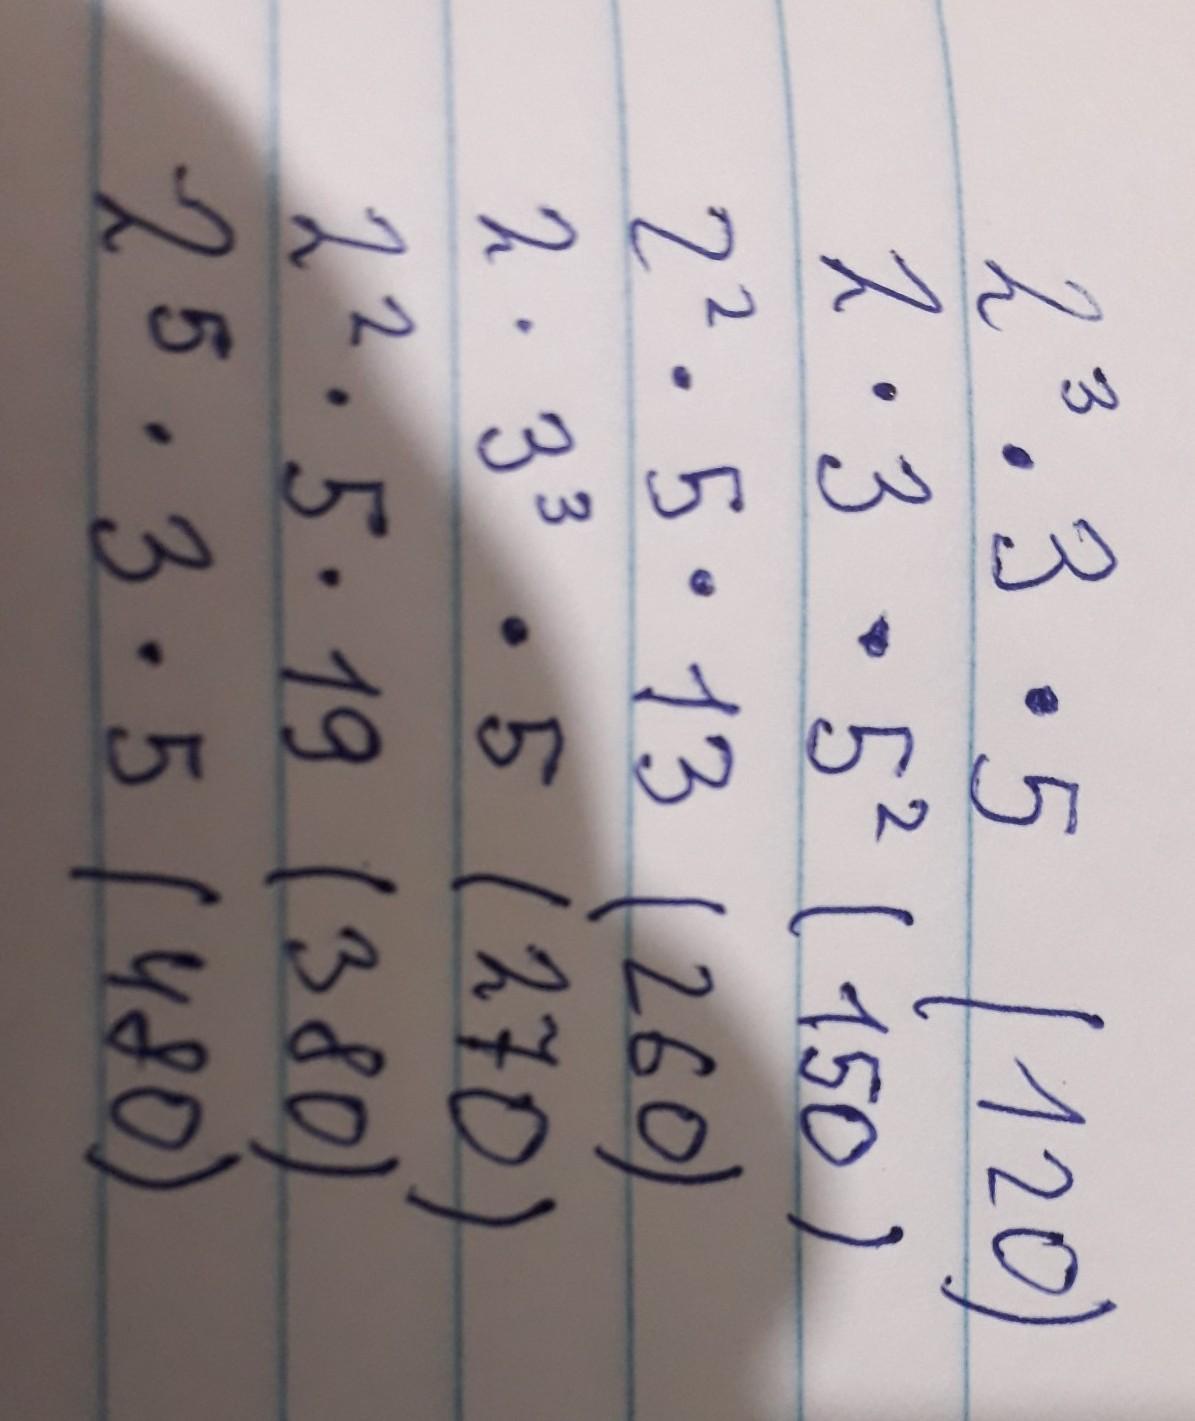 2³ · 3 · 5 (120)
2 · 3 · 5² (150)
2² · 5 · 13 (260)
2 · 3³ · 5 (270)
2² · 5 · 19 (380)
2⁵ · 3 · 5 (480)